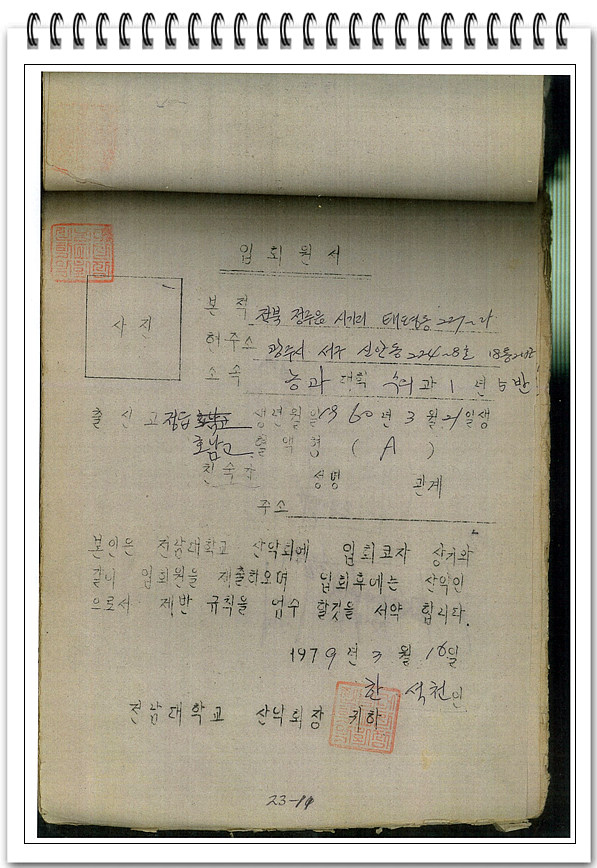 입회원서
사진
본적 전북 정주읍 시기리 태평동 227~다
현주소 광주시 서구 신안동 224~8호 18통
소속 농과대학 수의과 1년 반
출신고 정읍 호남고 생년월일 1960년 3월 21일생
호남고 혈액형 ( A )
친숙자 성명 관계
주소
본인은 전남대학교 산악회에 입회코자 상기와
같이 입회원을 제출하오며 입회후에는 산악인
으로서 제반 규칙을 엄수 할것을 서약 합니다.
1979년 3월 16일
한석천 인
전남대학교 산악회장 귀하
23-